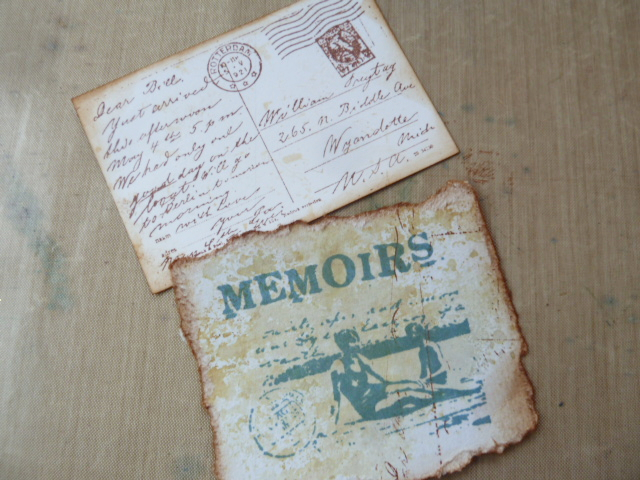 ROTTERDAM
Dear Bill,
Just arrived
this afternoon
May 4th 5 p.m.
We had only one
good day on the
boat. Will go
to Berlin
morning
our with Love
Your
William Freytag
265. N. Biddle Ave
Wyandotte
Mich
U.S.A.
MEMOIRS